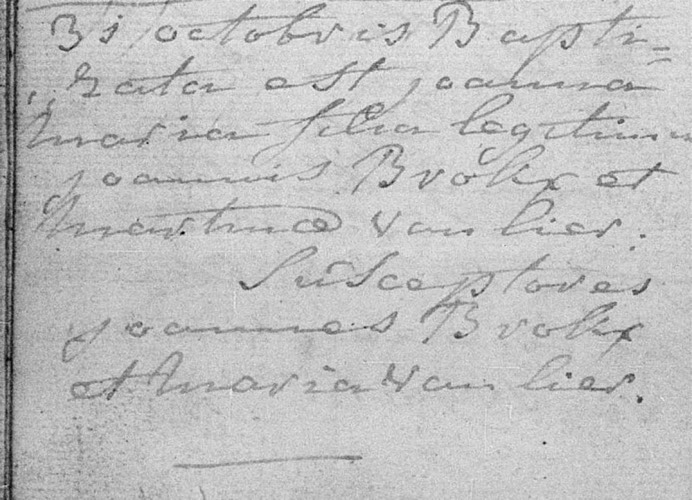 31 octobris Bapti=
zata est joanna
Maria filia legitima
joannis Brokx et
Martinae van lier.
Susceptores
joannes Brokx
et Maria van lier.